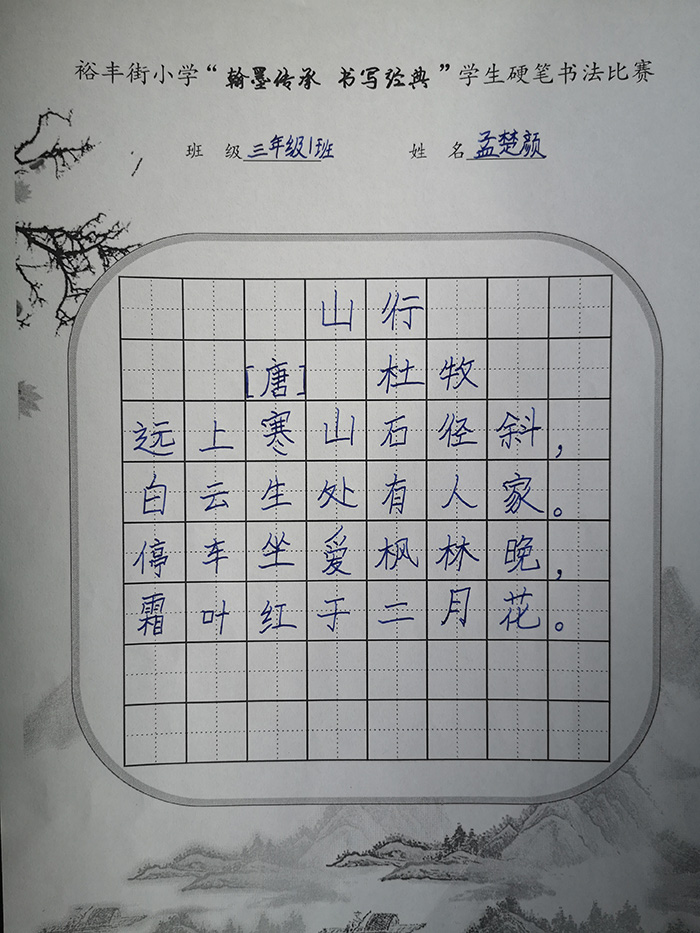 裕丰街小学“翰墨传承 书写经典”学生硬笔书法比赛
班 级 三年级1班 姓 名 孟楚颜
山行
[唐] 杜牧
远上寒山石径斜，
白云生处有人家。
停车坐爱枫林晚，
霜叶红于二月花。